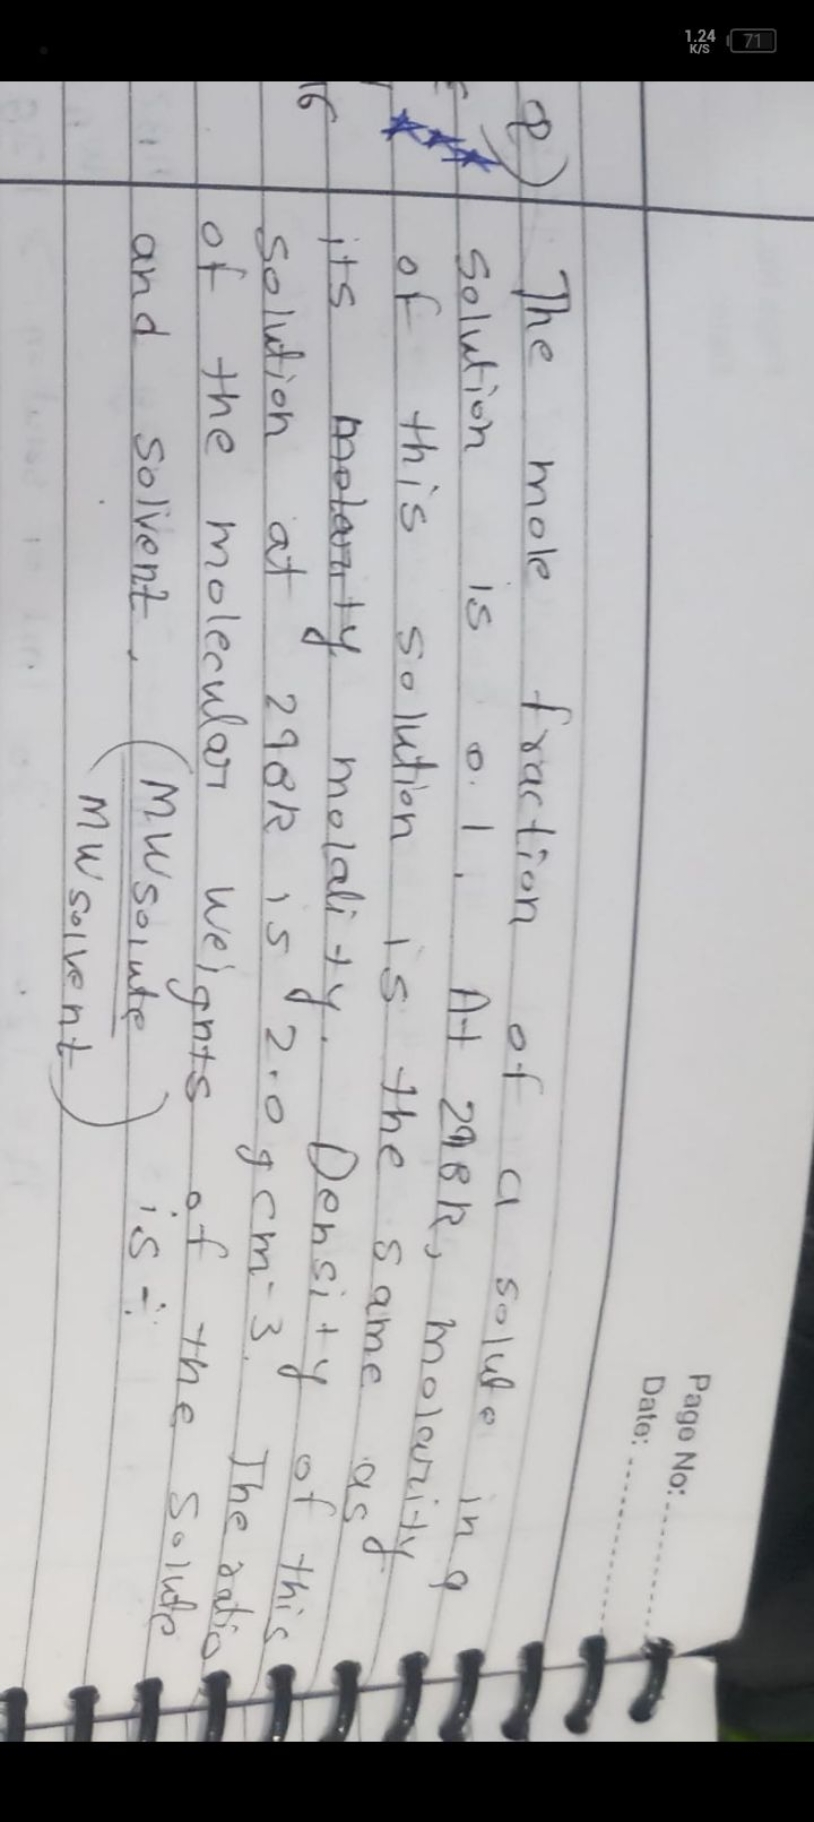 1.24
K/S
71
Page No:
Date:
Q) The mole fraction of a solute in a
*** solution is 0.1. At 298K, molarity
of this solution is the same as
16 its molarity molality. Density of this
solution at 298K is 2.0 g cm-3. The ratio
of the molecular weights of the solute
and solvent, (MWsolute
MWsolvent) is -: